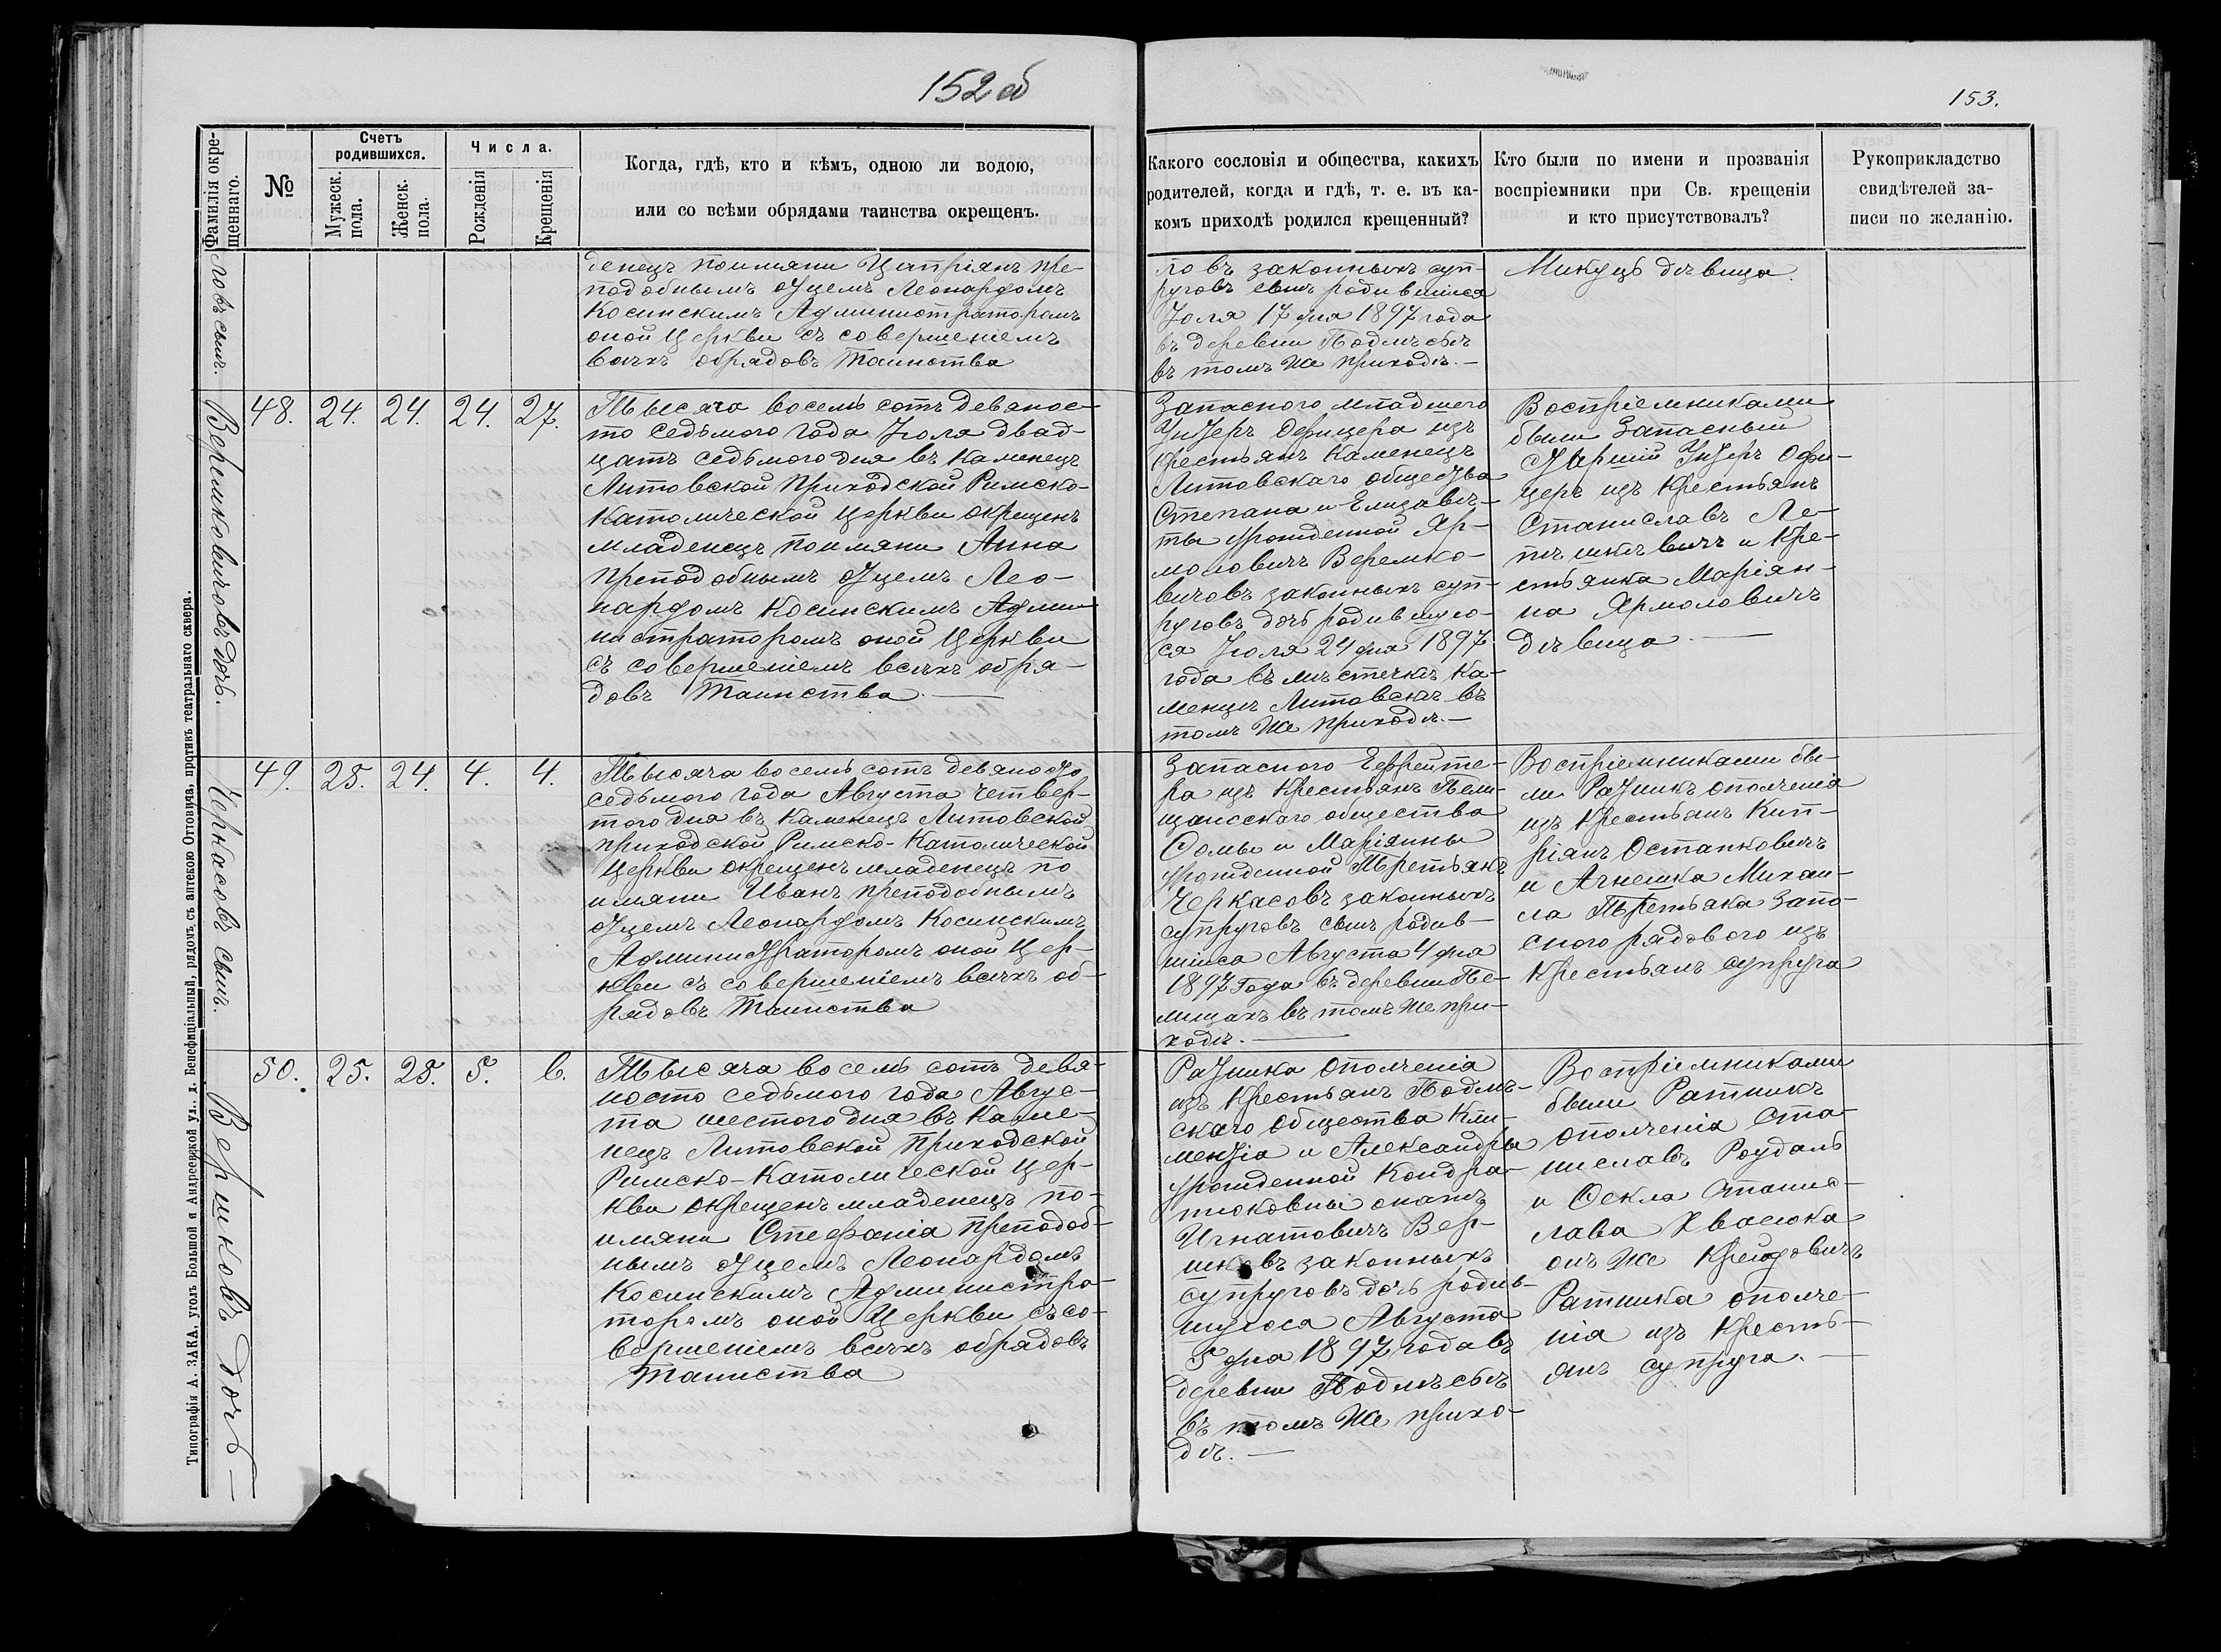 152об
153.
Фамилія окре-
щеннаго.
№
Счетъ
родившихся.
Мужеск.
пола.
Женск.
пола.
Числа.
Рожденія
Крещенія
Когда, гдѣ, кто и кѣмъ, одною ли водою,
или со всѣми обрядами таинства окрещенъ.
Какого сословія и общества, какихъ
родителей, когда и гдѣ, т. е. въ ка-
комъ приходѣ родился крещенный?
Кто были по имени и прозванія
воспріемники при Св. крещеніи
и кто присутствовалъ?
Рукоприкладство
свидѣтелей за-
писи по желанію.
ловъ сынъ.
денецъ поимяниЦипріянъ пре-
подобнымъ отцемъ Леонардомъ
Косинскимъ Администраторомъ
оной Церкви съ совершеніемъ
всѣхъ обрядовъ Таинства
ловъ законныхъ суп-
руговъ сынъ родившійся
Іюля 17 дня 1897 года
въ деревни Подлѣсьѣ
въ томъ же приходѣ.—
Микуць дѣвица.
Веремковичовъ дочь.
48. 24. 24. 24. 27.
Тысяча восемь сотъ девянос-
то седьмого года Іюля двад-
цать седьмого дня въ Каменецъ
Литовской Приходской Римско-
Католической Церкви окрещенъ
младенецъ поимяни Анна
преподобнымъ отцемъ Лео-
нардомъ Косинскимъ Адми-
нистраторомъ оной Церкви
съ совершеніемъ всѣхъ обря-
довъ Таинства.—
Запасного младшего
Унтеръ Офицера изъ
крестьянъ Каменецъ
Литовскаго общества
Степана и Елизаве-
ты урожденной Яр-
моловичъ Веремко-
вичовъ законныхъ суп-
руговъ дочь родившую-
ся Іюля 24 дня 1897
года въ мѣстечкѣ Ка-
менцѣ Литовскѣ въ
томъ же приходѣ.—
Воспріемниками
были Запасный
Старшій Унтеръ Офи-
церъ изъ крестьянъ
Станиславъ Ле-
пешкевичъ и кре-
стьянка Маріян-
на Ярмоловичъ
дѣвица.—
Черкасовъ сынъ.
49. 25. 24. 4. 4.
Тысяча восемь сотъ девяносто
седьмого года Августа четвер-
того дня въ Каменецъ Литовской
приходской Римско-Католической
Церкви окрещенъ младенецъ по
имяни Иванъ преподобнымъ
отцемъ Леонардомъ Косинскимъ
Администраторомъ оной Цер-
кви съ совершеніемъ всѣхъ об-
рядовъ Таинства
Запасного Ефрейто-
ра изъ крестьянъ Пели-
щанскаго общества
Фомы и Маріянны
урожденной Третьякъ
Черкасовъ законныхъ
супруговъ сынъ родив-
шійся Августа 4 дня
1897 года въ деревни Пе-
лищахъ въ томъ же при-
ходѣ.—
Воспріемниками бы-
ли Ратникъ ополченія
изъ крестьянъ Кип-
ріянъ Остапковичъ
и Агнешка Михаи-
ла Третьяка Запа-
сного рядового изъ
крестьянъ супруга
Вершковъ дочь—
50. 25. 25. 5. 6.
Тысяча восемь сотъ девя-
носто седьмого года Авгус-
та шестого дня въ Каме-
нецъ Литовской Приходской
Римско-Католической Цер-
кви окрещенъ младенецъ по-
имяни Стефанія преподоб-
нымъ отцемъ Леонардомъ
Косинскимъ Администра-
торомъ оной Церкви съ со-
вершеніемъ всѣхъ обрядовъ
Таинства
Ратника Ополченія
изъ крестьянъ Подлѣ-
скаго общества Кли-
ментія и Александры
урожденной Кондра-
тюковны онажъ
Игнатовичъ Вер-
шковъ законныхъ
супруговъ дочь родив-
шуюся Августа
5 дня 1897 года въ
деревни Подлѣсьѣ
въ томъ же прихо-
дѣ.—
Воспріемниками
были Ратникъ
ополченія Ста-
ниславъ Роудаль
и Фекла Станис-
лава Квасюка
онъ же Крейдовичъ
Ратника ополче-
нія изъ кресть-
янъ супруга.—
Типографія А. ЗАКА, уголъ Большой и Андреевской ул., д. Бенефиціальный, рядомъ, съ аптекою Оттовича, противъ театральнаго сквера.